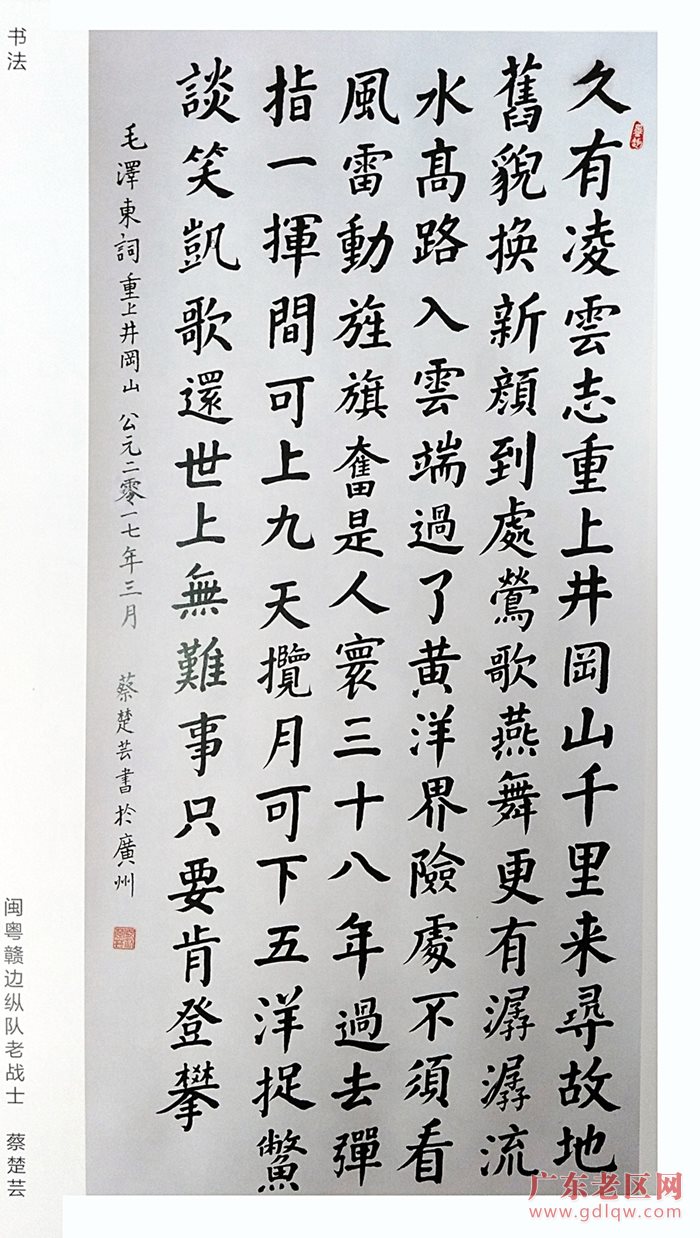 久有凌雲志重上井岡山千里来尋故地
舊貌换新顔到處鶯歌燕舞更有潺潺流
水髙路入雲端過了黄洋界險處不須看
風雷動旌旗奮是人寰三十八年過去彈
指一揮間可上九天攬月可下五洋捉鱉
談笑凱歌還世上無難事只要肯登攀
毛澤東詞重上井岡山 公元二零一七年三月 蔡楚芸書於廣州
书法
闽粤赣边纵队老战士 蔡楚芸
广东老区网
www.gdlqw.com